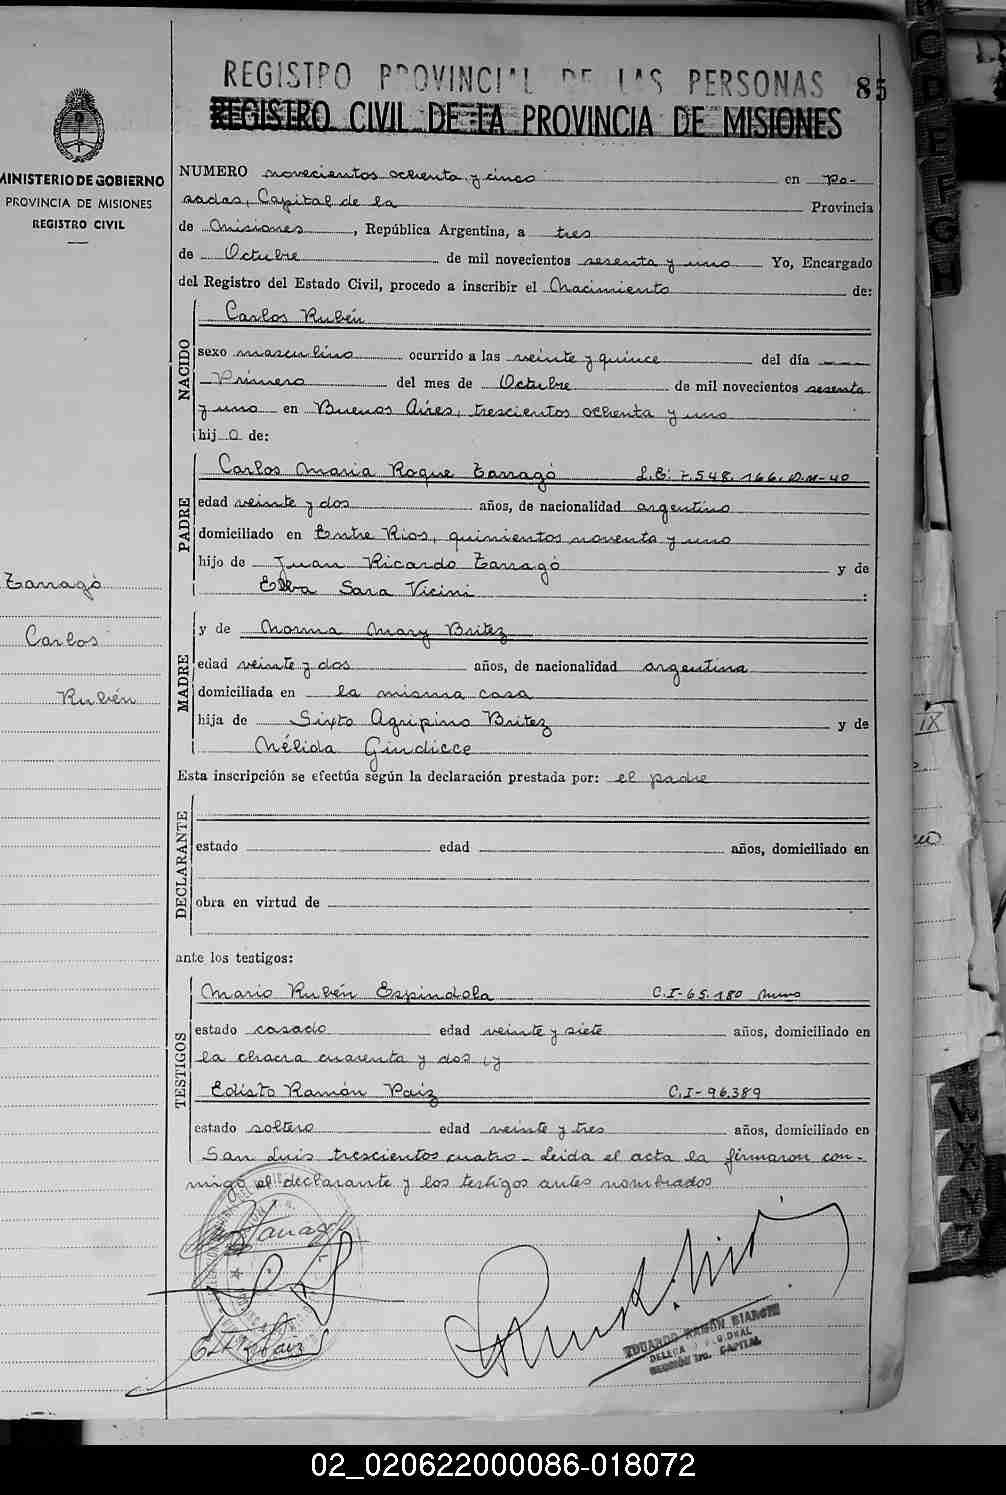 REGISTRO PROVINCIAL DE LAS PERSONAS 85
REGISTRO CIVIL DE LA PROVINCIA DE MISIONES
MINISTERIO DE GOBIERNO
PROVINCIA DE MISIONES
REGISTRO CIVIL
NUMERO novecientos ochenta y cinco en Po-
sadas, Capital de la Provincia
de Misiones, República Argentina, a tres
de Octubre de mil novecientos sesenta y uno Yo, Encargado
del Registro del Estado Civil, procedo a inscribir el Nacimiento de:
NACIDO
Carlos Rubén
sexo masculino ocurrido a las veinte y quince del día
Primero del mes de Octubre de mil novecientos sesenta
y uno en Buenos Aires, trescientos ochenta y uno
hijo de:
PADRE
Carlos Maria Roque Tarragó L.E: 7.548.166. D.M-40
edad veinte y dos años, de nacionalidad argentino
domiciliado en Entre Rios, quinientos noventa y uno
hijo de Juan Ricardo Tarragó y de
Elba Sara Vicini :
Tarragó
Carlos
Rubén
MADRE
y de Norma Mary Britez
edad veinte y dos años, de nacionalidad argentina
domiciliada en la misma casa
hija de Sixto Agripino Britez y de
Nélida Giudicce
Esta inscripción se efectúa según la declaración prestada por: el padre
DECLARANTE
estado edad años, domiciliado en
obra en virtud de
ante los testigos:
TESTIGOS
Mario Rubén Espindola C.I-65.180
estado casado edad veinte y siete años, domiciliado en
la chacra cuarenta y dos y
Edisto Ramón Paiz C.I-96.389
estado soltero edad veinte y tres años, domiciliado en
San Luis trescientos cuatro_ Leida el acta la firmaron con-
migo el declarante y los testigos antes nombrados
Tarragó
EDUARDO RAMÓN BIANCHI
DELEGADO REGIONAL
SECCIÓN 1ra. CAPITAL
IX
02_020622000086-018072